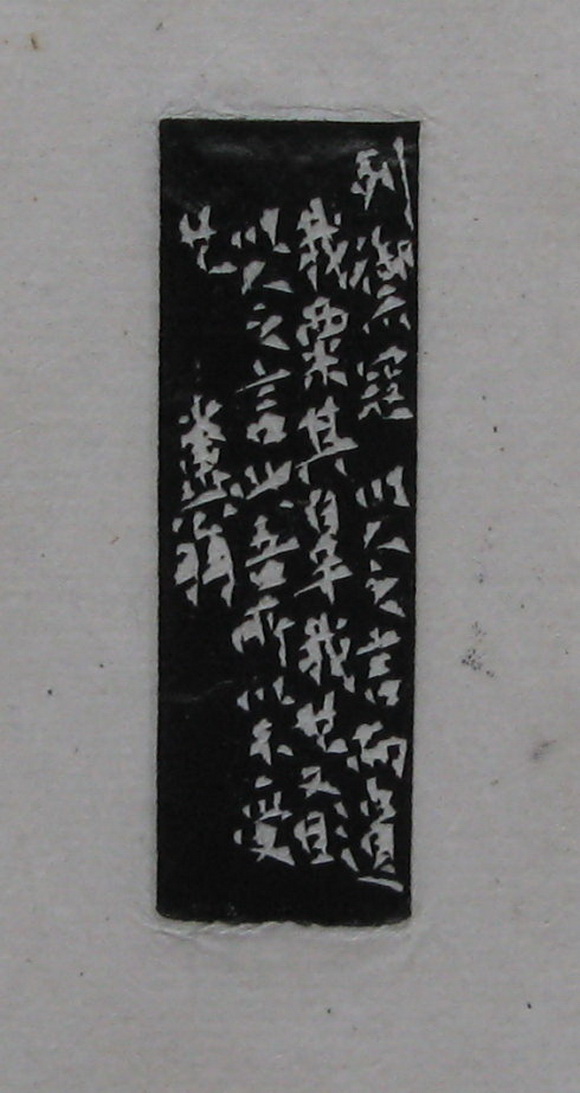 列御寇 以人之言而遺
我粟其自辠我也又且
以人之言此吾所以不受
也